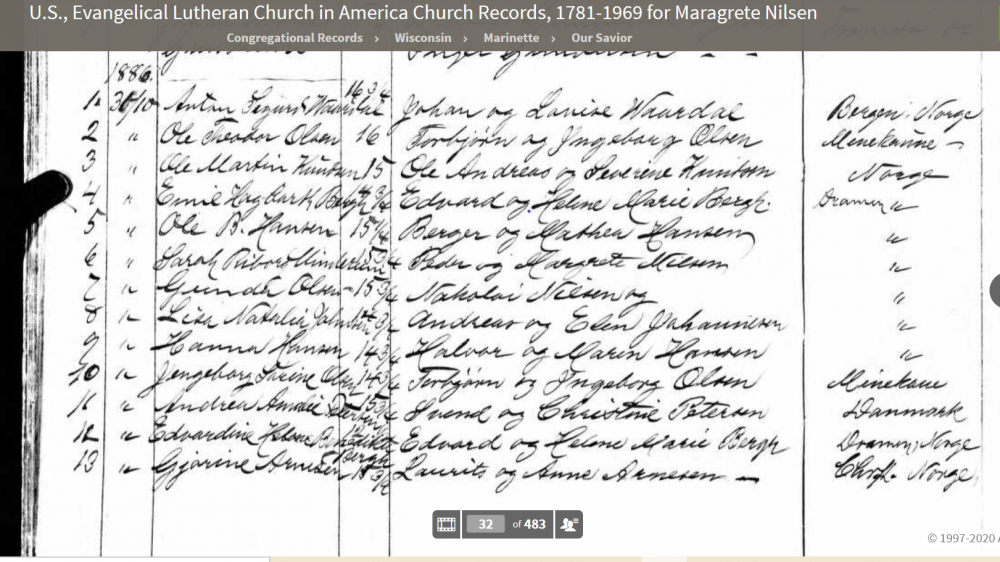 U.S., Evangelical Lutheran Church in America Church Records, 1781-1969 for Maragrete Nilsen
Congregational Records › Wisconsin › Marinette › Our Savior
1886.
1. 30/10 Anton Sigurd Waardal 16 3/4 Johan og Lovise Waardal Bergen, Norge
2 " Ole Teodor Olsen 16 Torbjørn og Ingeborg Olsen Minekaune
3 " Ole Martin Knutsen 15 Ole Andreas og Severine Knutsen Norge
4 " Emil Hagbarth Bergh Edvard og Helene Marie Bergh. Dramen "
5 " Ole B. Hansen 15 1/4 Berger og Mathea Hansen "
6 " Sarah Peder og Margrete Nilsen "
7 " Gunder Olsen 15 3/4 Nikolai Nilsen og "
8 " Lisa Natalia Andreas og Elen Johannesen "
9 " Hanna Hansen 14 3/4 Halvor og Maren Hansen "
10 " Jengeborg Olsen 14 3/4 Torbjørn og Ingeborg Olsen Minekaue
11 " Andrea Amalie Petersen Svend og Christine Petersen Danmark
12 " Edvardine Helene Benedikte Bergh Edvard og Helene Marie Bergh Dramen, Norge
13 " Gjorine Arnesen Laurits og Anne Arnesen Norge
32 of 483
© 1997-2020